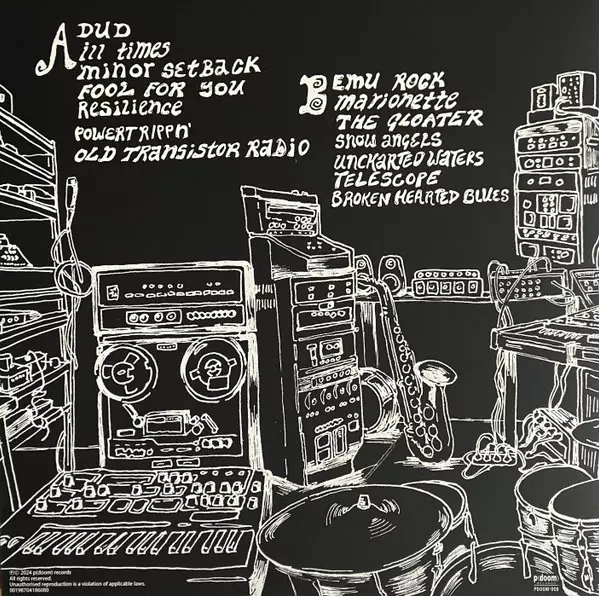 A
DUD
ill times
minor setback
FOOL FOR YOU
Resilience
POWERTRIPPN'
OLD TRANSISTOR RADIO
B
EMU ROCK
marionette
THE GLOATER
SNOW ANGELS
UNCHARTED WATERS
TELESCOPE
BROKEN HEARTED BLUES
℗© 2024 p(doom) records
All rights reserved.
Unauthorised reproduction is a violation of applicable laws.
00198704186080
p(doom)
RECORDS